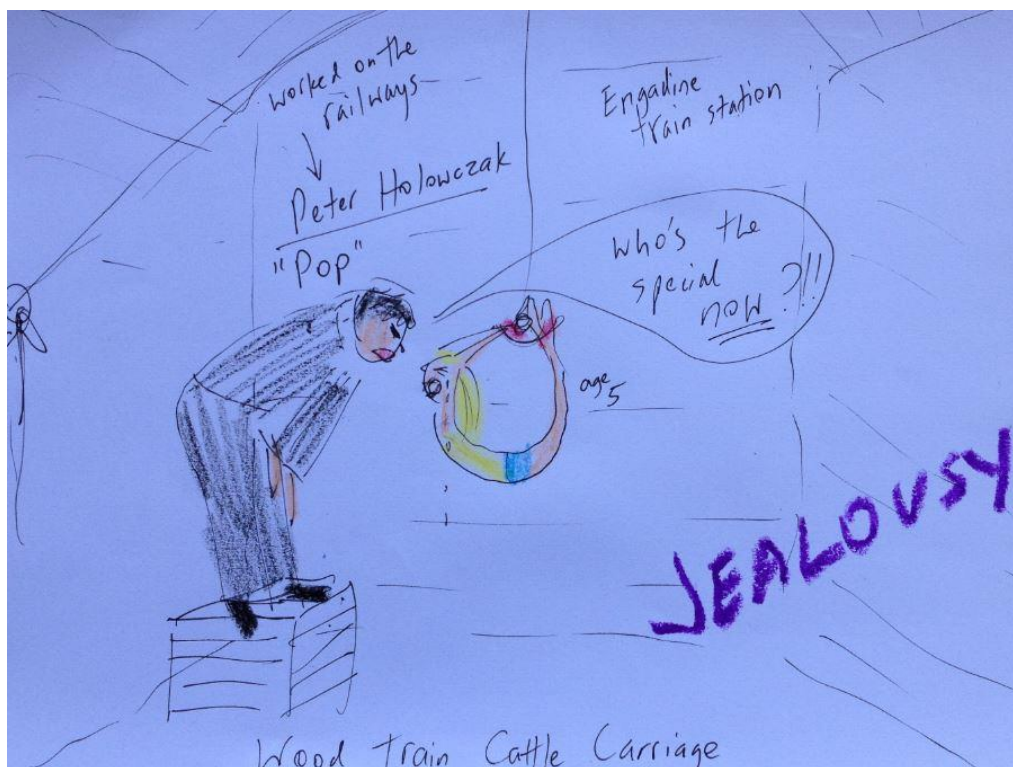 worked on the
railways
Peter Holowczak
"Pop"
Engadine
train station
Who's the
special
now?!!
age
5
JEALOUSY
Wood Train Cattle Carriage